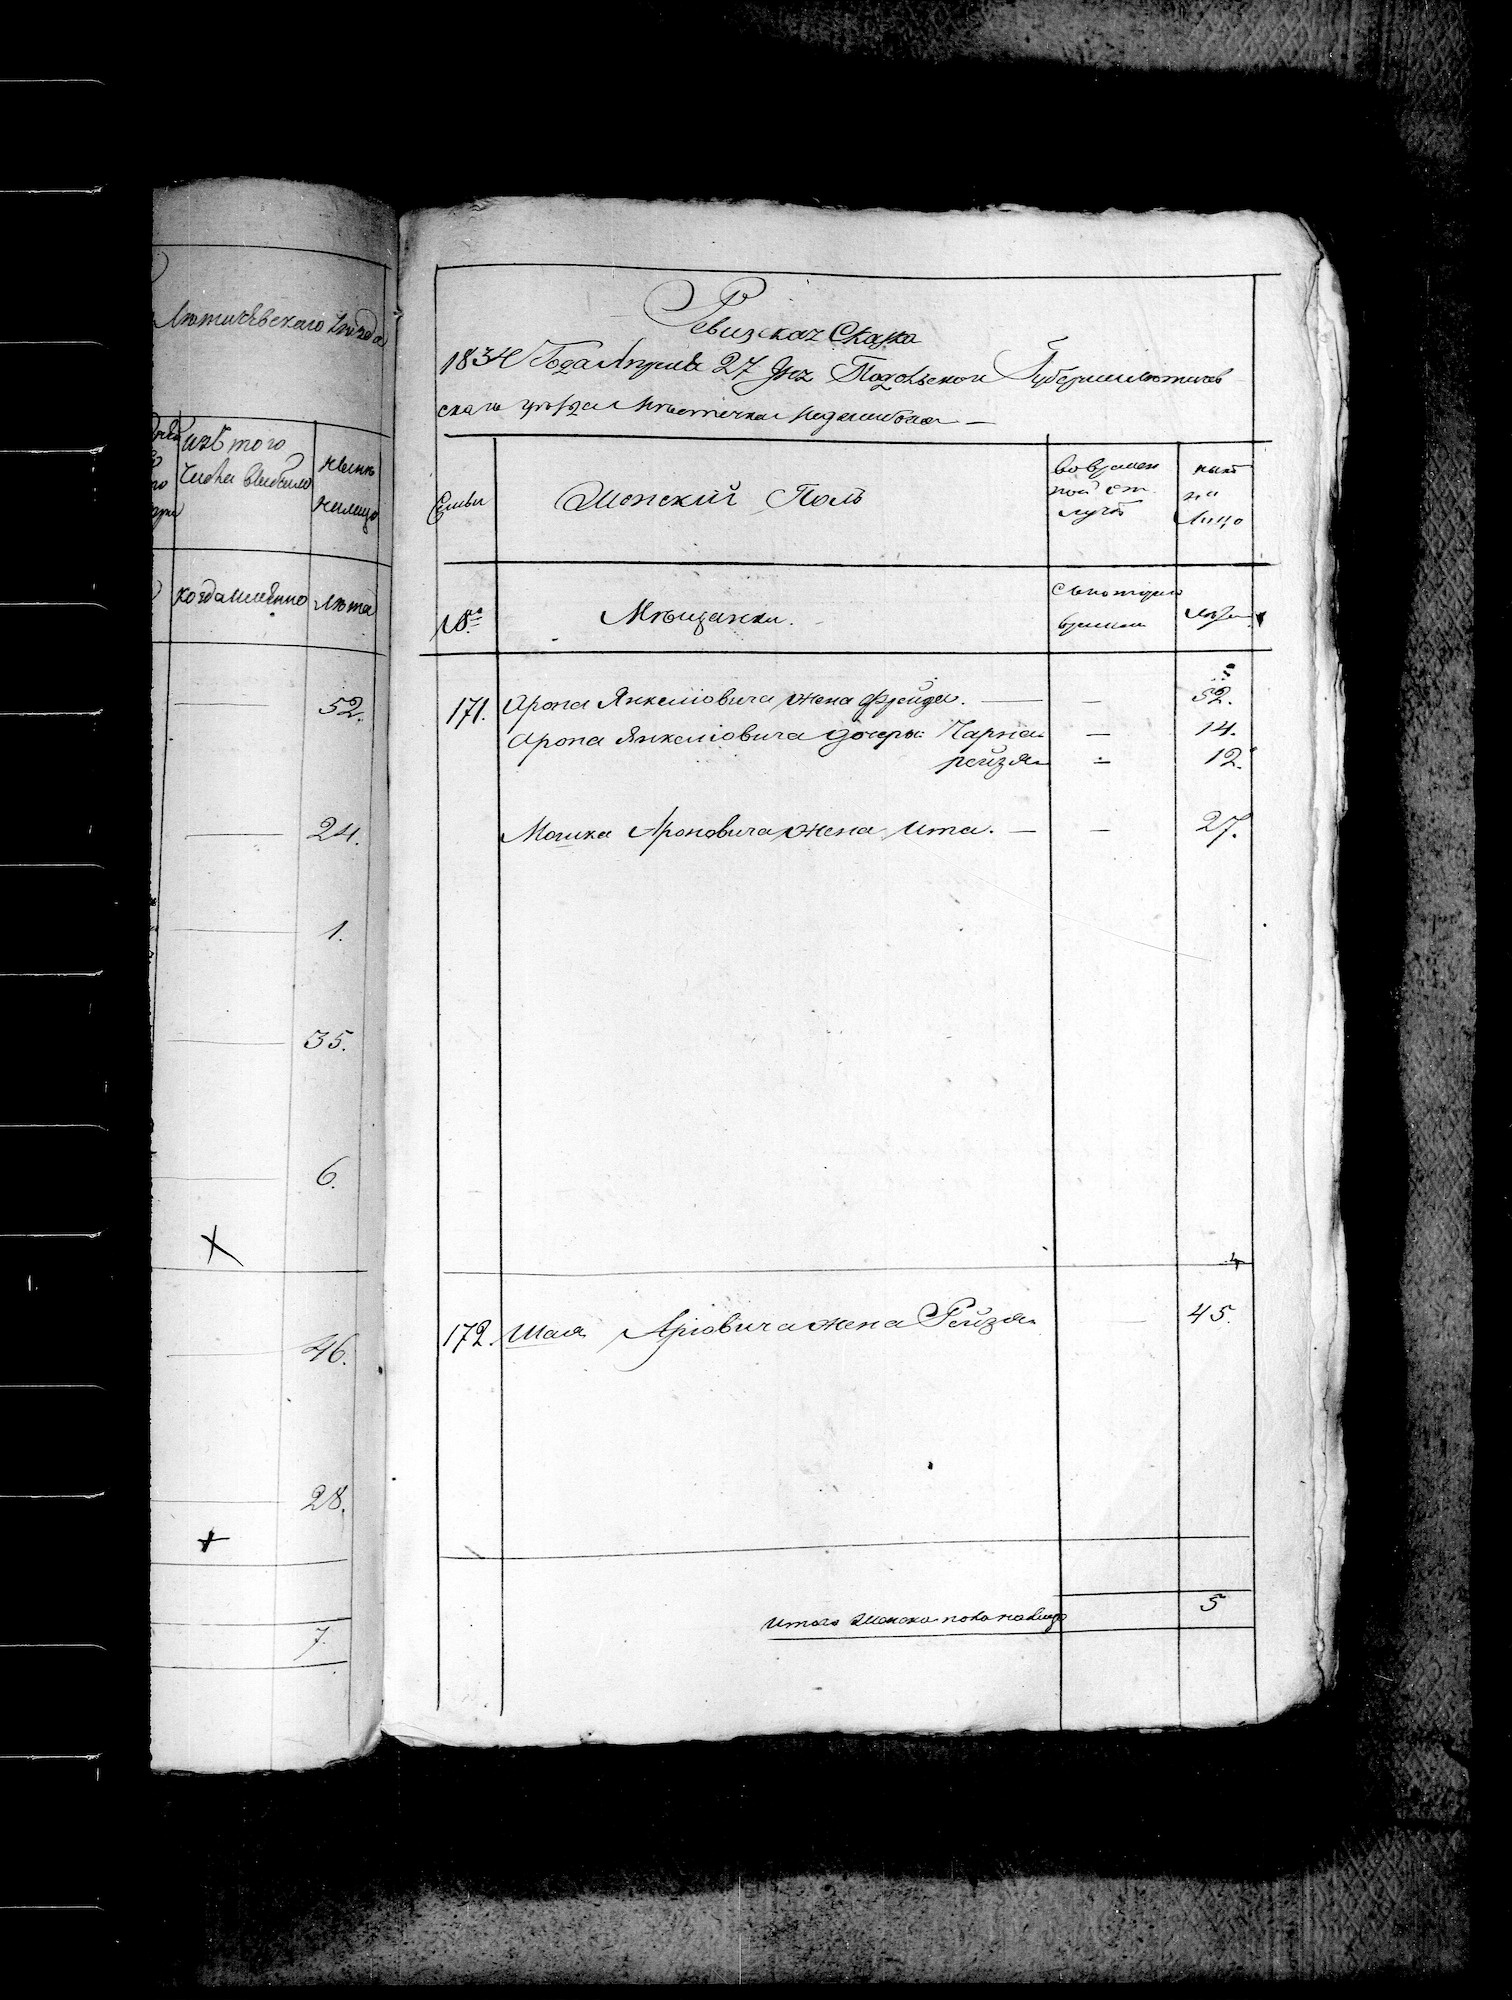 Лѣтичевскаго уѣзда
изъ того
числа выбыло
нынѣ
налицо
когда именно
лѣта
52.
24.
1.
35.
6.
46.
28.
7.
Ревизская Сказка
1834 Года Апреля 27 дня Подольской Губернии Летичев
скаго уѣзда мѣстечка
Семьи
Женский Полъ
во времен
ной от
лучкѣ
нынѣ
на
лицо
№
Мѣщанки.
съ котораго
времени
лѣта
171. Арона Янкелiовича жена Фрейда. — — 52.
Арона Янкелiовича дочери: Чарна — 14.
рейзя 12.
Мошка Ароновича жена Ита. — — 27.
4
172. Шая Арiовича жена Рейзя — 45.
Итого женска пола налицо 5